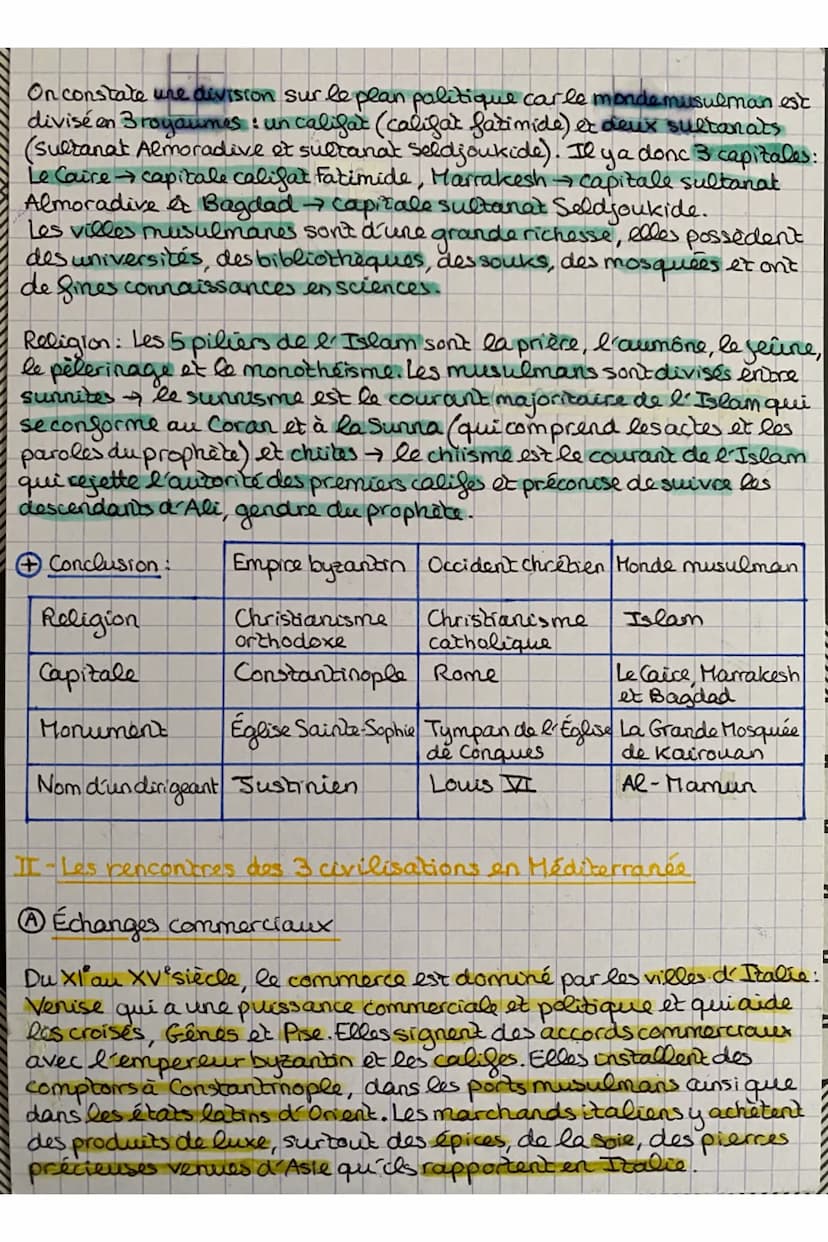 On constate une division sur le plan politique car le monde musulman est
divisé en 3 royaumes : un califat (califat fatimide) et deux sultanats
(sultanat Almoradive et sultanat Seldjoukide). Il y a donc 3 capitales :
Le Caire → capitale califat Fatimide, Marrakesh → capitale sultanat
Almoradive et Bagdad → capitale sultanat Seldjoukide.
Les villes musulmanes sont d'une grande richesse, elles possèdent
des universités, des bibliothèques, des souks, des mosquées et ont
de fines connaissances en sciences.
Religion : Les 5 piliers de l'Islam sont la prière, l'aumône, le jeûne,
le pèlerinage et le monothéisme. Les musulmans sont divisés entre
sunnites → le sunnisme est le courant majoritaire de l'Islam qui
se conforme au Coran et à la Sunna (qui comprend les actes et les
paroles du prophète) et chiites → le chiisme est le courant de l'Islam
qui rejette l'autorité des premiers califes et préconise de suivre les
descendants d'Ali, gendre du prophète.
+ Conclusion : Empire byzantin Occident chrétien Monde musulman
Religion Christianisme orthodoxe Christianisme catholique Islam
Capitale Constantinople Rome Le Caire, Marrakesh et Bagdad
Monument Église Sainte-Sophie Tympan de l'Église de Conques La Grande Mosquée de Kairouan
Nom d'un dirigeant Justinien Louis VI Al-Mamun
II - Les rencontres des 3 civilisations en Méditerranée
A Échanges commerciaux
Du XIe au XVe siècle, le commerce est dominé par les villes d'Italie :
Venise qui a une puissance commerciale et politique et qui aide
les croisés, Gênes et Pise. Elles signent des accords commerciaux
avec l'empereur byzantin et les califes. Elles installent des
comptoirs à Constantinople, dans les ports musulmans ainsi que
dans les états latins d'Orient. Les marchands italiens y achètent
des produits de luxe, surtout des épices, de la soie, des pierres
précieuses venues d'Asie qu'ils rapportent en Italie.